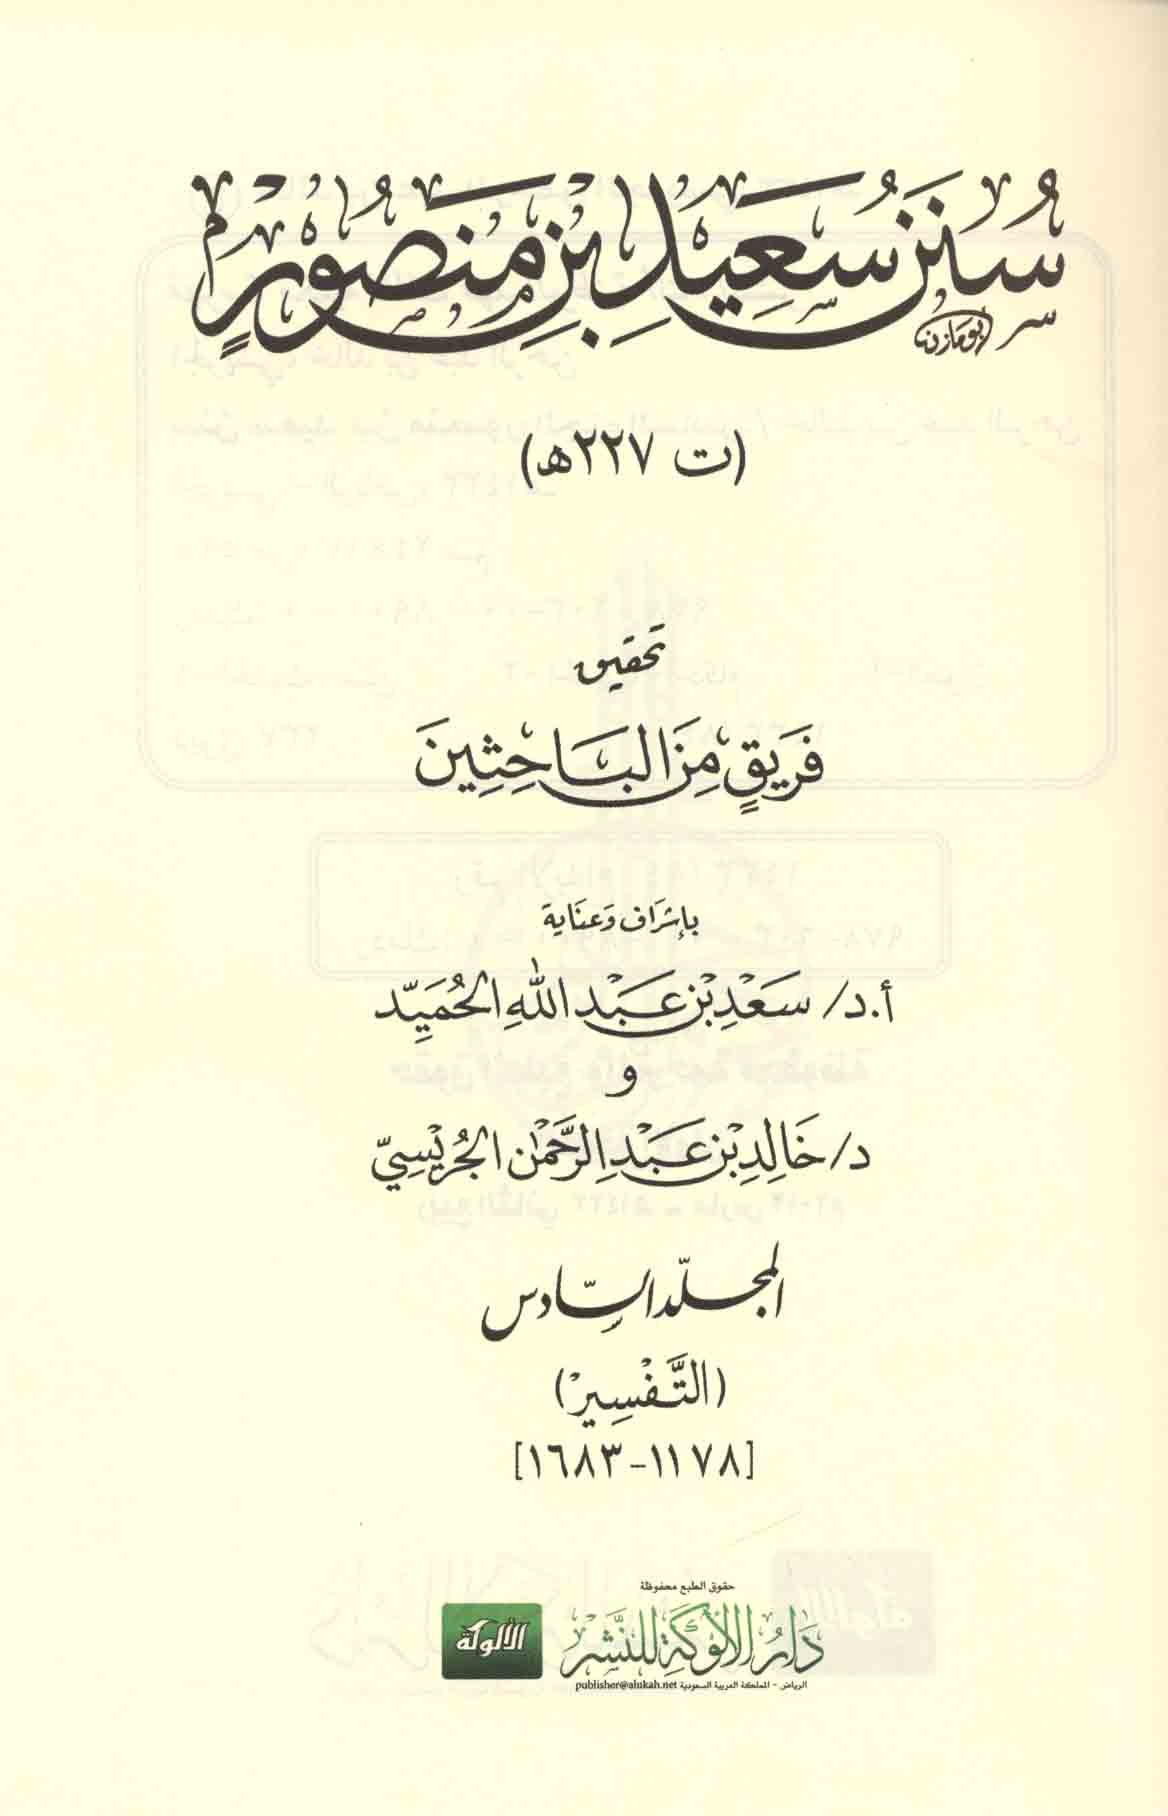 سُنَن سَعِيدِ بْنِ مَنْصُورٍ
أبو مازن
(ت ٢٢٧هـ)
تحقيق
فَرِيقٍ مِنَ البَاحِثِينَ
بإشراف وعناية
أ.د/ سَعْدِ بْنِ عَبْدِ اللهِ الحُمَيِّد
و
د/ خَالِدِ بْنِ عَبْدِ الرَّحْمٰنِ الجُرَيْسِيّ
المجلّد السّادس
(التَّفْسِير)
[١١٧٨-١٦٨٣]
حقوق الطبع محفوظة
دَارُ الألُوكَةِ للنَّشْرِ
الرياض - المملكة العربية السعودية publisher@alukah.net
الألوكة